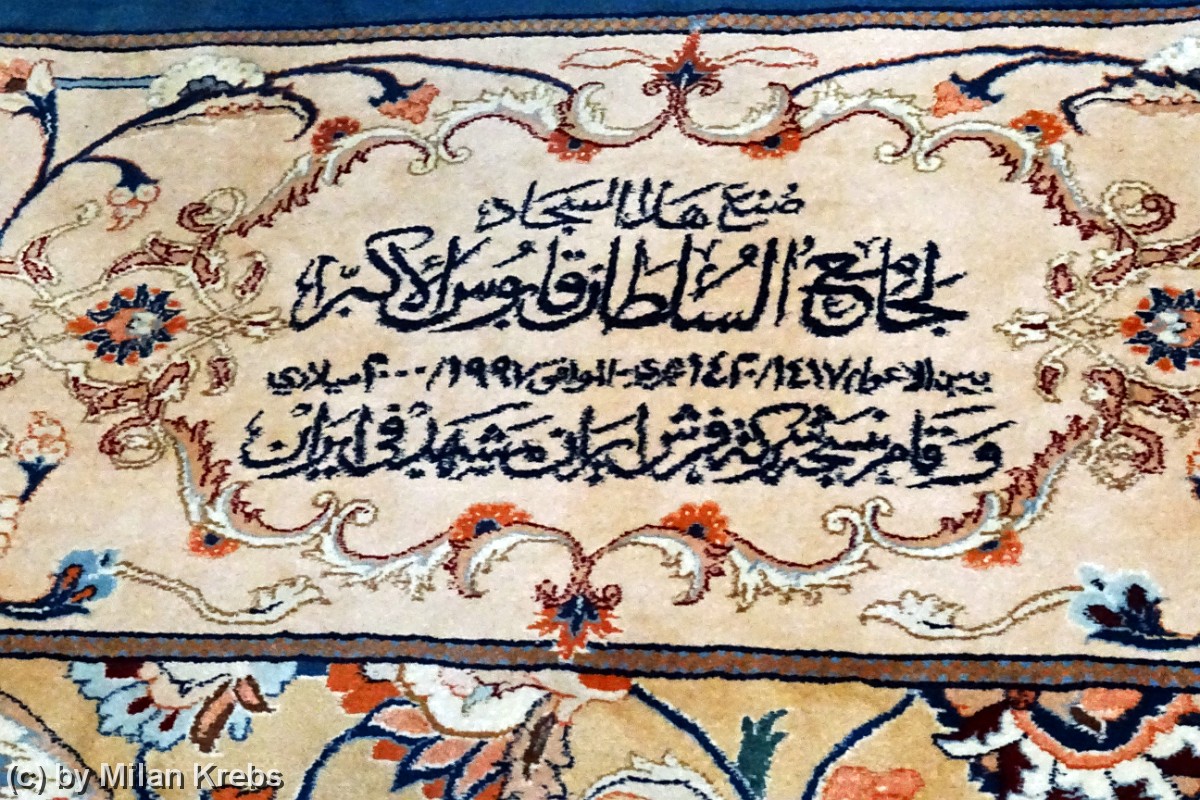 صُنِعَ هَذا السجاد
لجَامِع السُلطان قابُوس الأكبَر
بين الاعوام ١٤١٧/١٤٢٠ هجري - الموافق ١٩٩٧/٢٠٠٠ ميلادي
وَقَام بنسجه شركة فرش ايران مَشهد في ايران
(c) by Milan Krebs